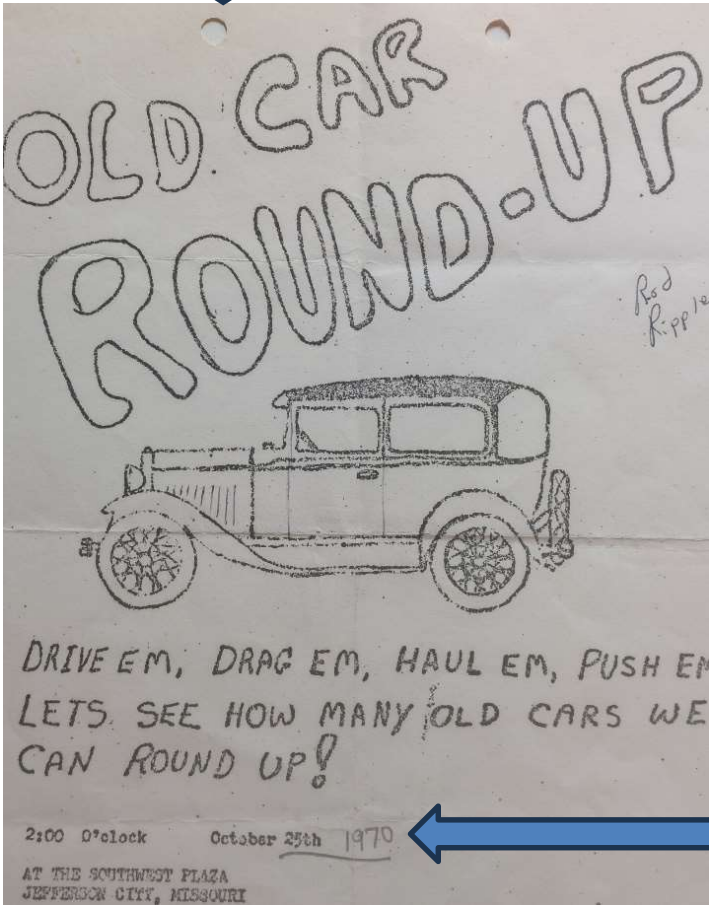 OLD CAR
ROUND-UP
Rod
Ripple
DRIVE EM, DRAG EM, HAUL EM, PUSH EM
LETS SEE HOW MANY OLD CARS WE
CAN ROUND UP!
2:00 O'clock October 25th 1970
AT THE SOUTHWEST PLAZA
JEFFERSON CITY, MISSOURI